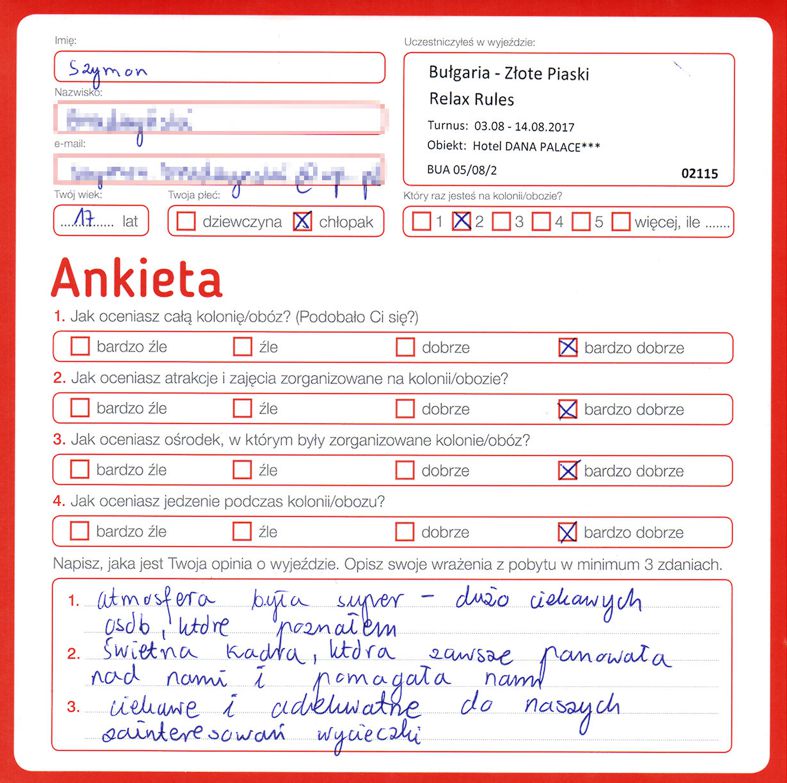 Imię:
Szymon
Nazwisko:
e-mail:
Twój wiek:
17 lat
Twoja płeć:
dziewczyna chłopak
Uczestniczyłeś w wyjeździe:
Bułgaria - Złote Piaski
Relax Rules
Turnus: 03.08 - 14.08.2017
Obiekt: Hotel DANA PALACE***
BUA 05/08/2 02115
Który raz jesteś na kolonii/obozie?
1 2 3 4 5 więcej, ile .......
Ankieta
1. Jak oceniasz całą kolonię/obóz? (Podobało Ci się?)
bardzo źle źle dobrze bardzo dobrze
2. Jak oceniasz atrakcje i zajęcia zorganizowane na kolonii/obozie?
bardzo źle źle dobrze bardzo dobrze
3. Jak oceniasz ośrodek, w którym były zorganizowane kolonie/obóz?
bardzo źle źle dobrze bardzo dobrze
4. Jak oceniasz jedzenie podczas kolonii/obozu?
bardzo źle źle dobrze bardzo dobrze
Napisz, jaka jest Twoja opinia o wyjeździe. Opisz swoje wrażenia z pobytu w minimum 3 zdaniach.
1. atmosfera była super - dużo ciekawych
osób, które poznałem
2. świetna kadra, która zawsze panowała
nad nami i pomagała nam
3. ciekawe i adekwatne do naszych
zainteresowań wycieczki